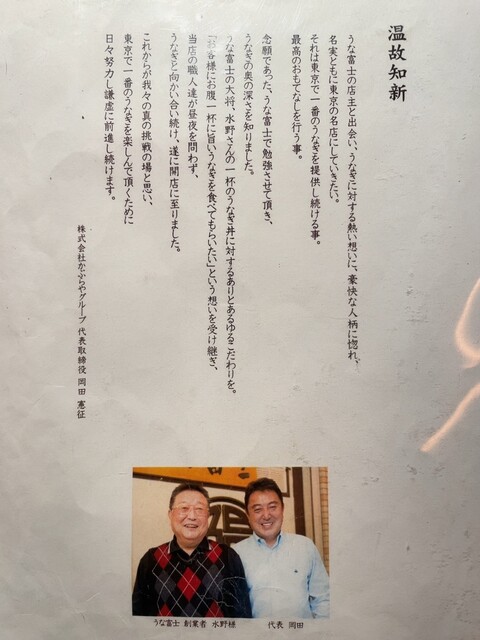 温故知新
うな富士の店主と出会い、うなぎに対する熱い想いに、豪快な人柄に惚れ、
名実ともに東京の名店にしていきたい。
それは東京で一番のうなぎを提供し続ける事。
最高のおもてなしを行う事。
念願であった、うな富士で勉強させて頂き、
うなぎの奥の深さを知りました。
うな富士の大将、水野さんの一杯のうなぎ丼に対するありとあるゆるこだわりを。
「お客様にお腹一杯に旨いうなぎを食べてもらいたい」という想いを受け継ぎ、
当店の職人達が昼夜を問わず、
うなぎと向かい合い続け、遂に開店に至りました。
これからが我々の真の挑戦の場と思い、
東京で一番のうなぎを楽しんで頂くために
日々努力し謙虚に前進し続けます。
株式会社かぶらやグループ 代表取締役 岡田 憲征
うな富士 創業者 水野様
代表 岡田